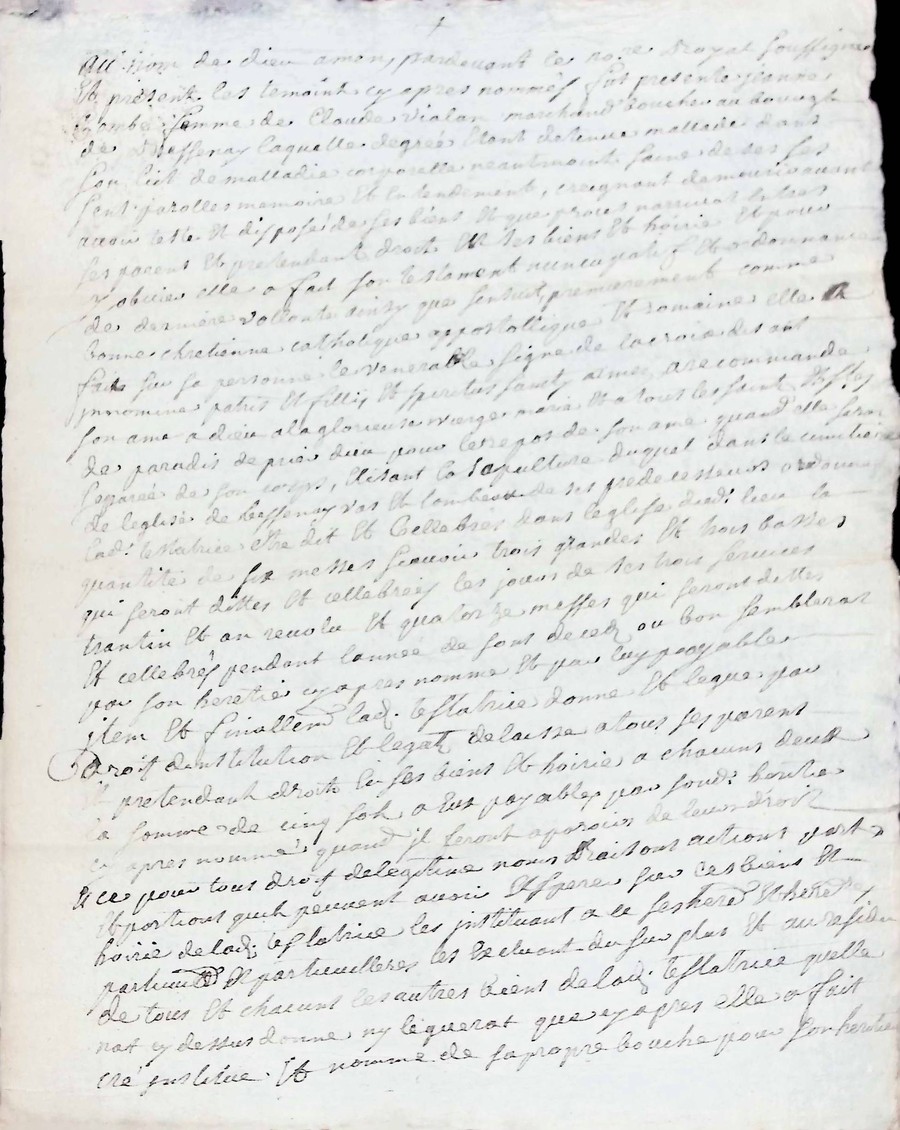 Au nom de dieu amen, pardevant le no.re Royal soussigné
Et present les temoint cy apres nommés fut presente jeanne
Combe femme de Claude vialan marchand boucher au bourgt
de Bessenay laquelle degrée Etant detenue mallade dans
son lict de malladie corporelle neautmoint saine de ses
sent parolles memoire Et Entendement, creignant de mourir avant
avoir testé Et disposé de ses bient Et que proces narrivat Entres
ses parens Et pretendant droit Et ses bient Et hoirie Et pour
y obvier elle a fait son testament nuncupatif Et ordonnance
de derniere vollonté ainsy que sensuit, premierement comme
bonne chretienne catholique appostollique Et romaine elle a
fait sur sa personne le venerable signe de la croix disant
jnnomine patris Et fillij Et spiritus sancty amen, a recommandé
son ame a dieu a la glorieuse vierge marie Et a tous les saint Et sttes
de paradis de prier dieu pour le repos de son ame quand elle sera
separée de son corps, Elisant la sepulture duquel dans le cimetiere
de leglise de Bessenay vas Et tombeau de ses predecesseurs ordonne
lad: testatrice Etre dit Et Cellebrés dans leglise dud: lieu la
quantité de six messes scavoir trois grandes Et trois basses
qui seront dittes Et cellebrées les jours de ses trois services
trantin Et an revolu Et quatorze messes qui seront dittes
Et cellebrés pendant lannée de sont deced ou bon semblerat
par son heretié cy apres nommé Et par luy payable
jtem Et finallem lad: testatrice donne Et legue par
droit dinstitution Et legat delaisse a tous ses parent
Et pretendant droit En ses bient Et hoirie a chacuns deux
la somme de cinq sols a Eux payables par sond: heritie
cy apres nommé quand jl seront aparoir de leur droit
Et ce pour tous droit de legitime noms Raisons actions part
Et portions quil peuvent avoir Et espere sur ces bient Et
hoirie de lad: testatrice les jnstituant a ce ses herd Et herers
particud Et particuilleres les Excluant du surplus Et au residu
de tous Et chacuns les autres bient de lad: testatrice quelle
nat cy dessus donné ny leguerat que cy apres elle a fait
cré jnstitue Et nommé de sa propre bouche pour son heritier